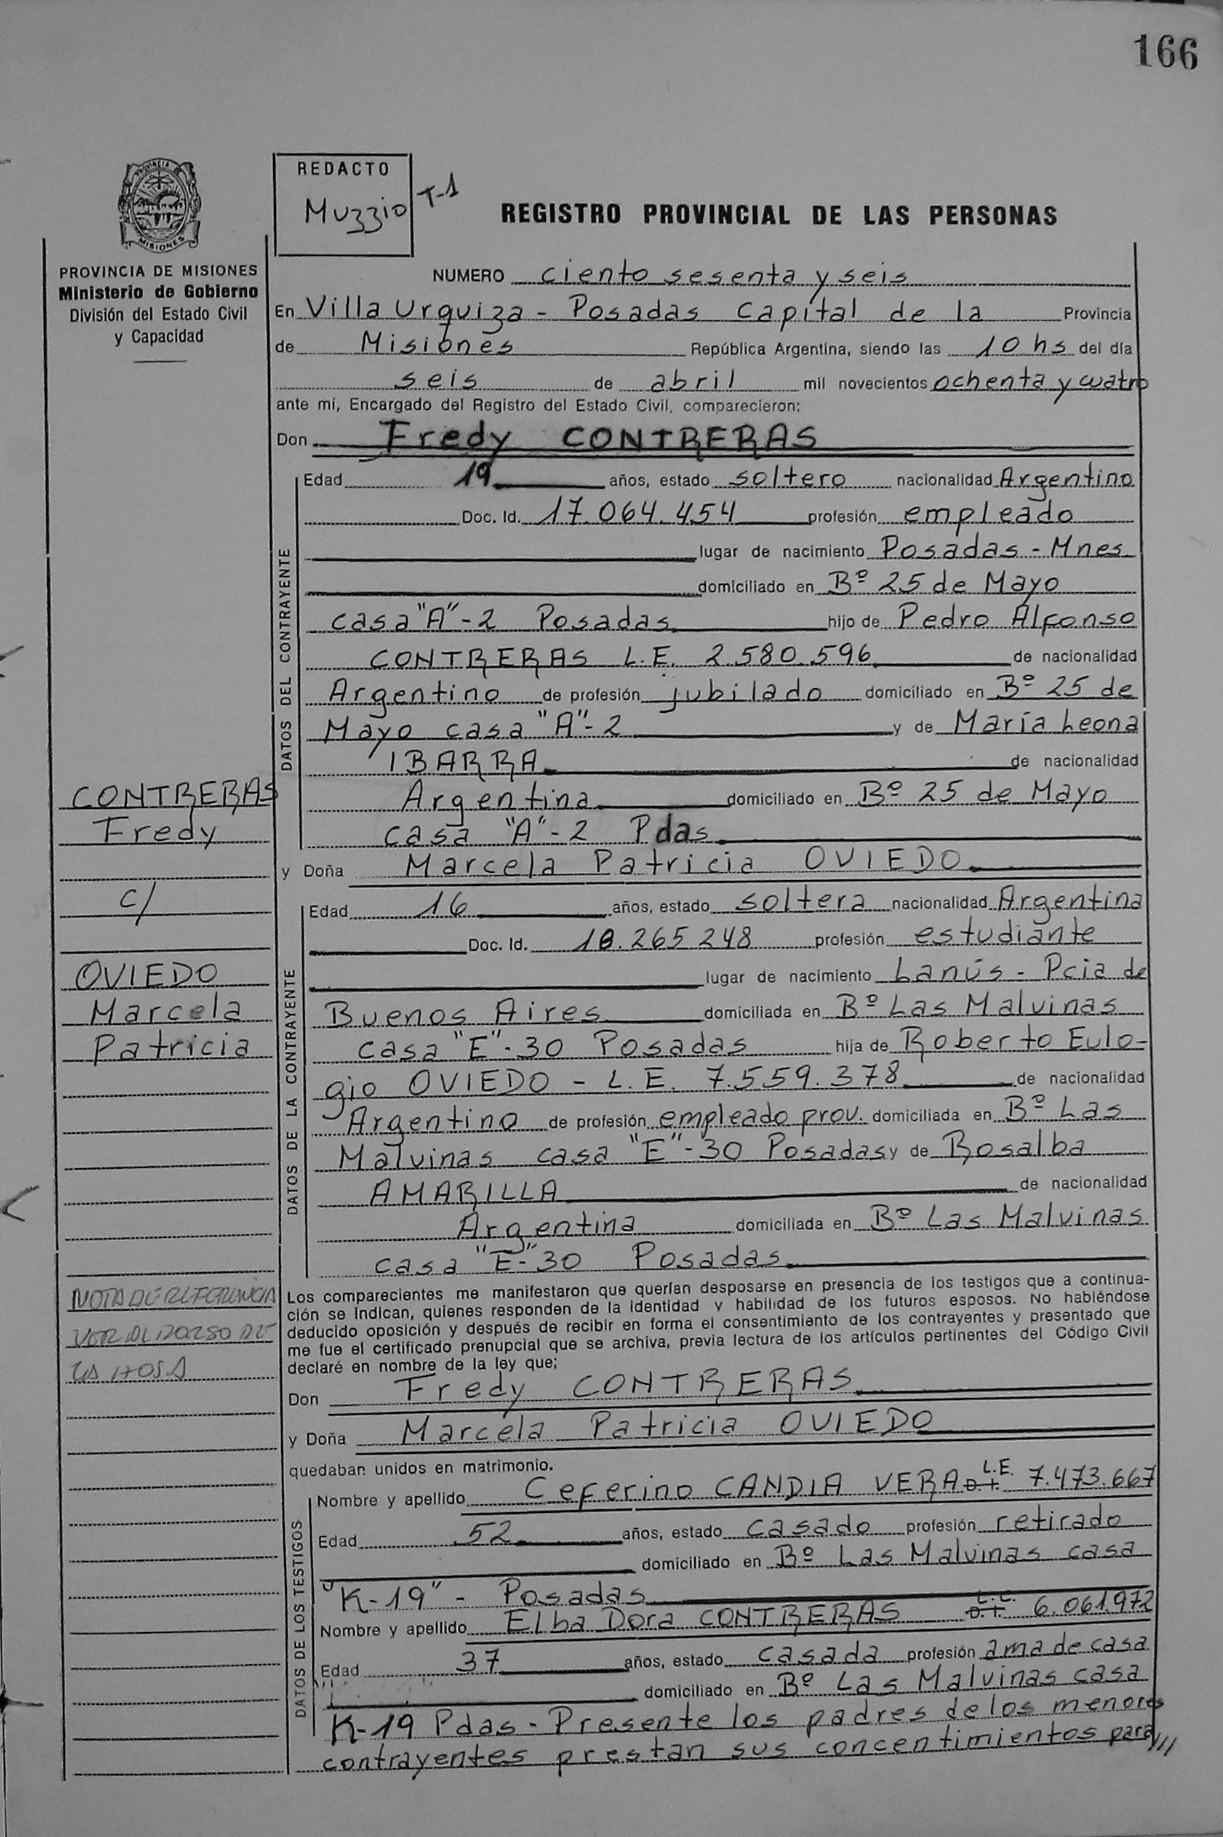 166
REDACTO
Muzzio T-1
REGISTRO PROVINCIAL DE LAS PERSONAS
PROVINCIA DE MISIONES
Ministerio de Gobierno
División del Estado Civil
y Capacidad
NUMERO ciento sesenta y seis
En Villa Urquiza - Posadas Capital de la Provincia
de Misiones República Argentina, siendo las 10 hs del día
seis de abril mil novecientos ochenta y cuatro
ante mí, Encargado del Registro del Estado Civil, comparecieron:
Don Fredy CONTRERAS
DATOS DEL CONTRAYENTE
Edad 19 años, estado soltero nacionalidad Argentino
Doc. Id. 17.064.454 profesión empleado
lugar de nacimiento Posadas - Mnes
domiciliado en Bº 25 de Mayo
casa "A"-2 Posadas hijo de Pedro Alfonso
CONTRERAS L.E. 2.580.596 de nacionalidad
Argentino de profesión jubilado domiciliado en Bº 25 de
Mayo casa "A"-2 y de María Leona
IBARRA de nacionalidad
Argentina domiciliado en Bº 25 de Mayo
casa "A"-2 Pdas
CONTRERAS
Fredy
c/
OVIEDO
Marcela
Patricia
y Doña Marcela Patricia OVIEDO
DATOS DE LA CONTRAYENTE
Edad 16 años, estado soltera nacionalidad Argentina
Doc. Id. 18.265.248 profesión estudiante
lugar de nacimiento Lanús - Pcia de
Buenos Aires domiciliada en Bº Las Malvinas
casa "E"-30 Posadas hija de Roberto Eulo-
gio OVIEDO - L.E. 7.559.378 de nacionalidad
Argentino de profesión empleado prov. domiciliada en Bº Las
Malvinas casa "E"-30 Posadas y de Rosalba
AMARILLA de nacionalidad
Argentina domiciliada en Bº Las Malvinas
casa "E-"30 Posadas
NOTA DE REFERENCIA
VER AL DORSO DE
LA HOJA
Los comparecientes me manifestaron que querían desposarse en presencia de los testigos que a continua-
ción se indican, quienes responden de la identidad y habilidad de los futuros esposos. No habiéndose
deducido oposición y después de recibir en forma el consentimiento de los contrayentes y presentado que
me fue el certificado prenupcial que se archiva, previa lectura de los artículos pertinentes del Código Civil
declaré en nombre de la ley que;
Don Fredy CONTRERAS
y Doña Marcela Patricia OVIEDO
quedaban unidos en matrimonio.
DATOS DE LOS TESTIGOS
Nombre y apellido Ceferino CANDIA VERA D.I. L.E. 7.473.667
Edad 52 años, estado casado profesión retirado
domiciliado en Bº Las Malvinas casa
"K-19" - Posadas
Nombre y apellido Elba Dora CONTRERAS D.I. L.C. 6.061972
Edad 37 años, estado casada profesión ama de casa
domiciliado en Bº Las Malvinas casa
K-19 Pdas - Presente los padres de los menores
contrayentes prestan sus concentimientos para///